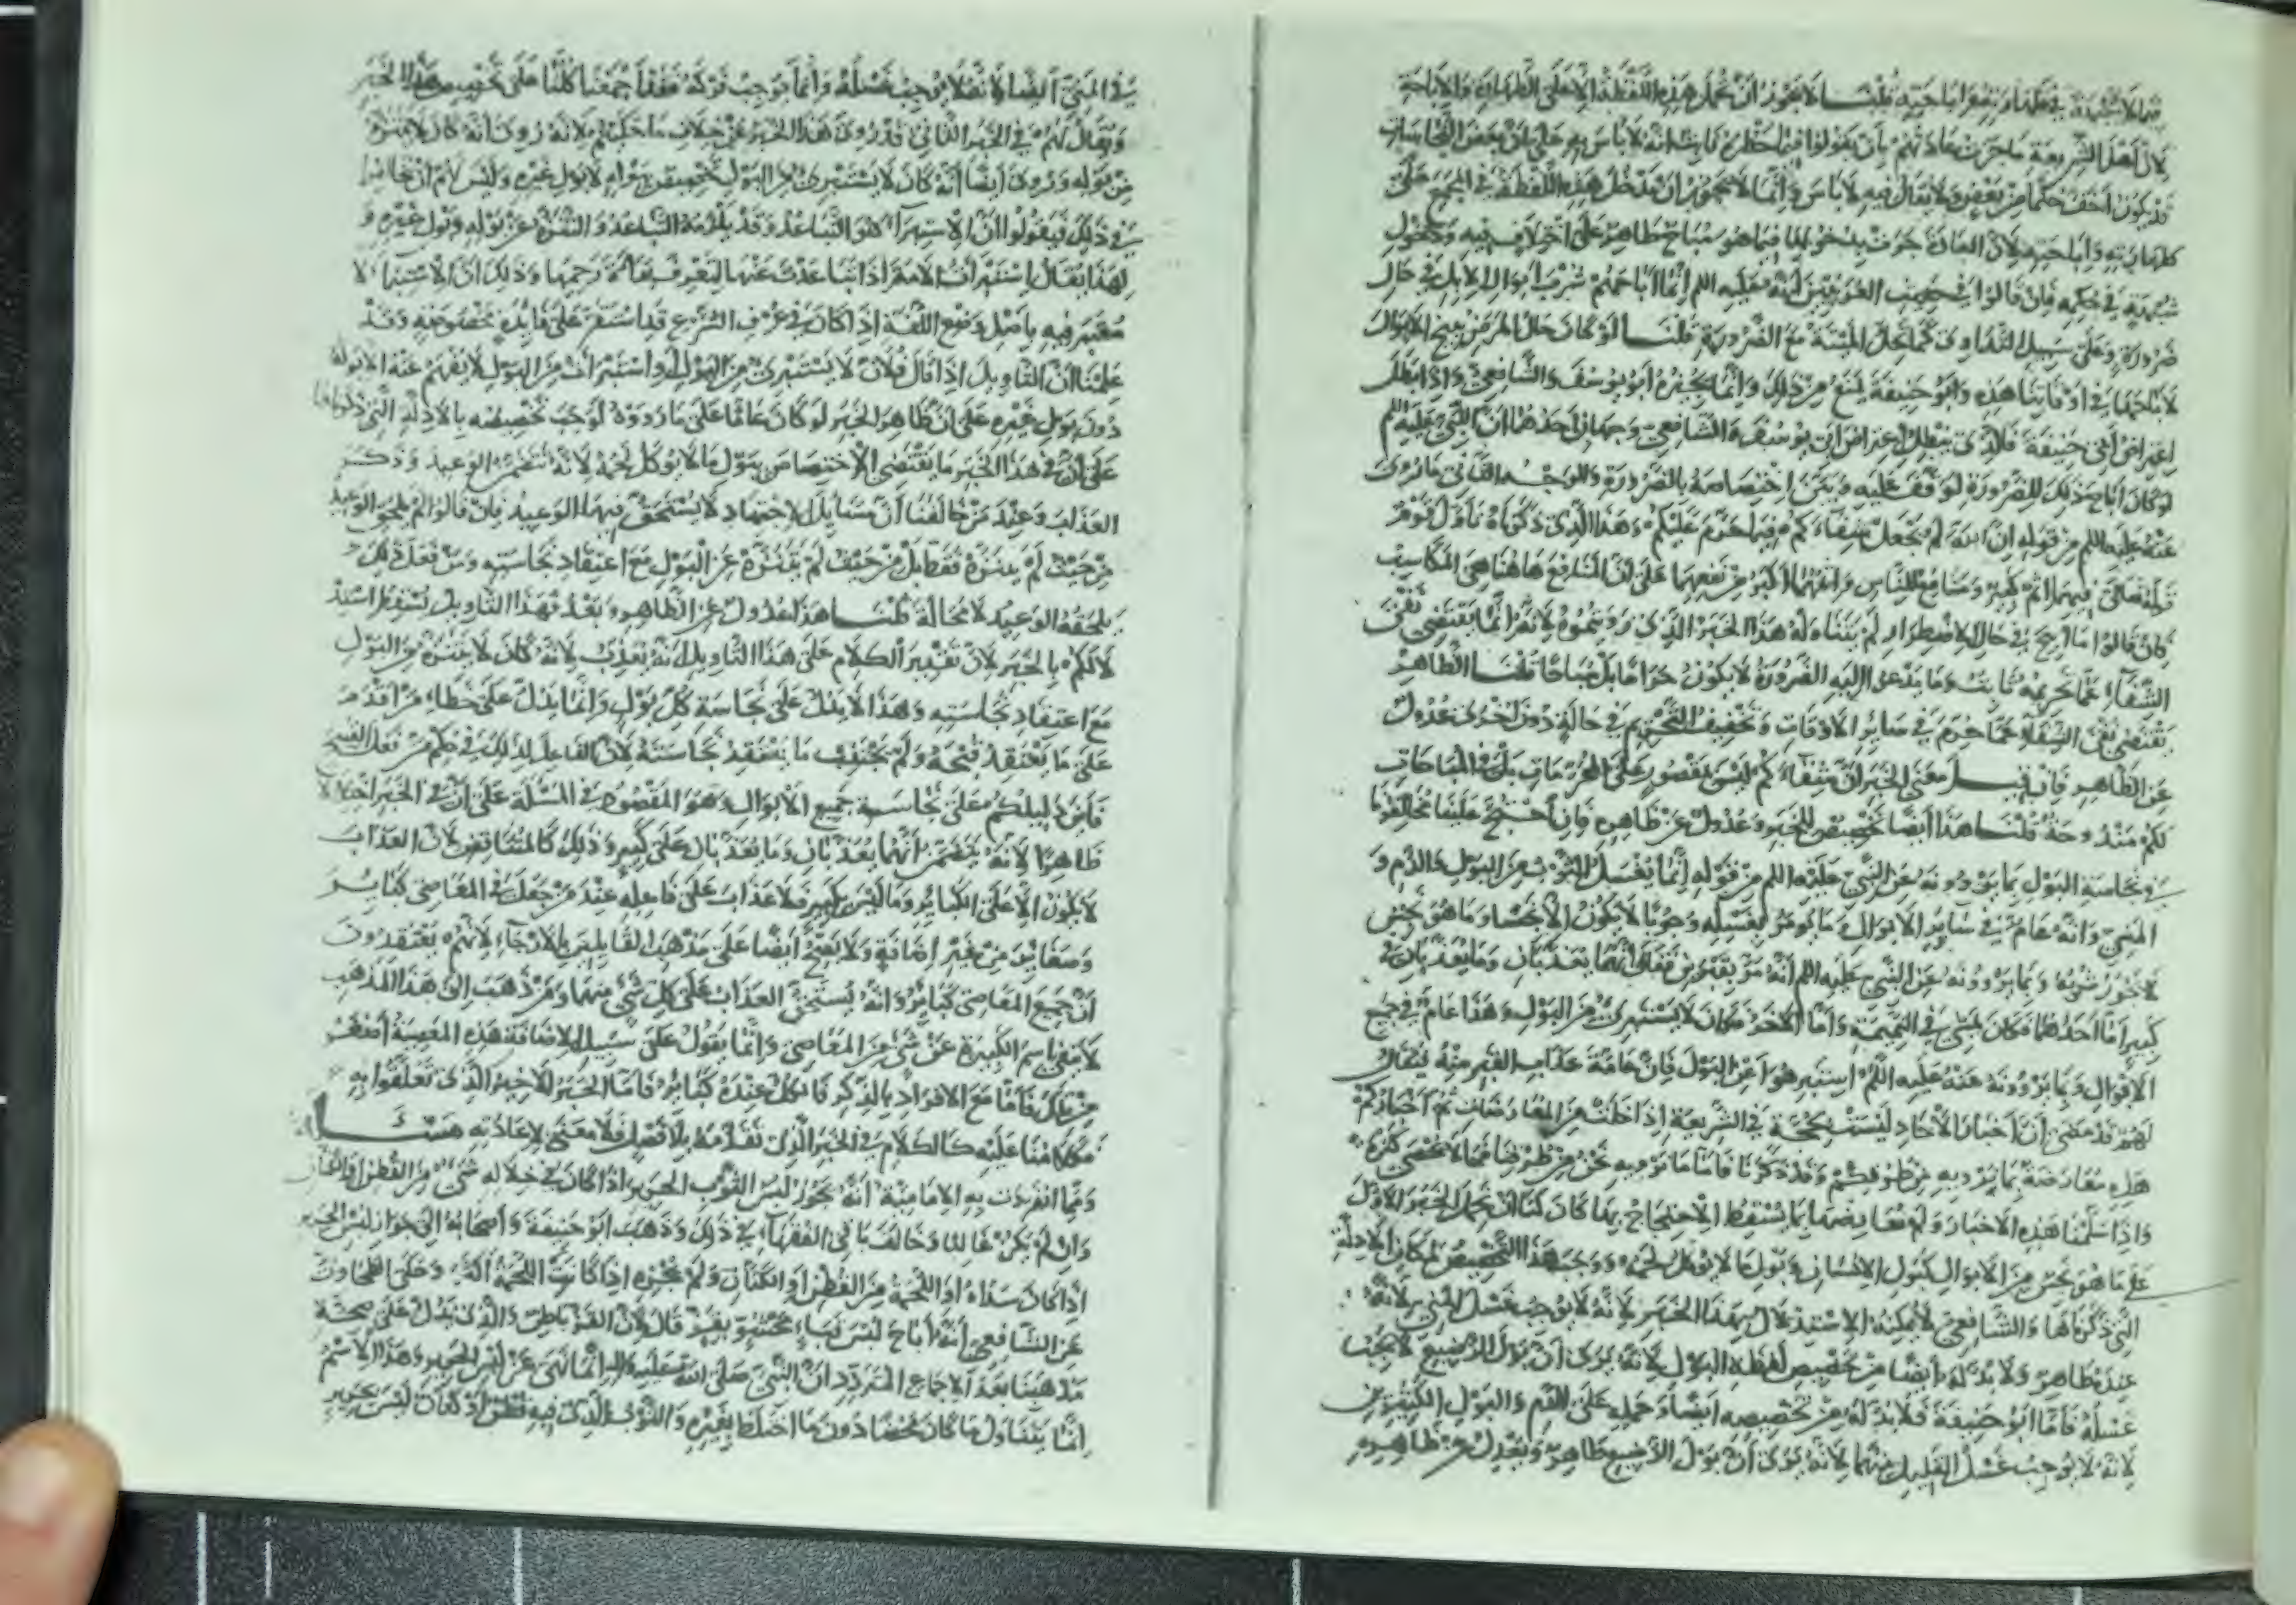 لأن أهل الشريعة ما جرت عادتهم بأن يقولوا فيما حظره ثابت إنه لا بأس به على أن بعض النجاسات
قد يكون أخف حكما من بعض ولا يقال فيه لا بأس به وإنما لا يجوز أن تدخل هذه اللفظة في المجمع على
طهارته وإباحته لأن العادة جرت بدخولها فيما هو مباح طاهر على اختلاف فيه ودخول
شبهة في حكمه فإن قالوا في حديث العرنيين إنه عليه السلم إنما أباحهم شرب أبوال الإبل في حال
ضرورة وعلى سبيل التداوي كما تحل الميتة مع الضرورة قلنا لو كان حال المرض يبيح الأبوال
لأباحها في أوقاتنا هذه وأبو حنيفة يمنع من ذلك وإنما يجيزه أبو يوسف والشافعي وإذا بطل
اعتراض أبي حنيفة فالذي يبطل اعتراض أبي يوسف والشافعي وجهان أحدهما أن النبي عليه السلم
لو كان أباح ذلك للضرورة لوقف عليه وبين اختصاصه بالضرورة والوجه الثاني ما روي
عنه عليه السلم من قوله إن الله لم يجعل شفاءكم فيما حرم عليكم وهذا الذي ذكرناه تأول قوم
قوله تعالى فيهما إثم كبير ومنافع للناس وإثمهما أكبر من نفعهما على أن المنافع هاهنا هي المكاسب
فإن قالوا ما أبيح في حال الاضطرار لم يتناوله هذا الخبر الذي رويتموه لأنه إنما يقتضي نفي
الشفاء عما تحريمه ثابت وما تدعو إليه الضرورة لا يكون حراما بل مباحا قلنا الظاهر
يقتضي نفي الشفاء عما حرم في سائر الأوقات وتخفيف التحريم في حالة دون أخرى عدول
عن الظاهر فإن قيل معنى الخبر أن شفاءكم ليس بمقصور على المحرمات بل في المباحات
لكم مندوحة قلنا هذا أيضا تخصيص للخبر وعدول عن ظاهره فإن احتج علينا مخالفونا
في نجاسة البول بما يروونه عن النبي عليه السلم من قوله إنما يغسل الثوب من البول والدم و
المني وأنه عام في سائر الأبوال وما يؤمر بغسله وجوبا لا يكون إلا نجسا وما هو نجس
لا يجوز شربه وبما يروونه عن النبي عليه السلم أنه مر بقبرين فقال إنهما يعذبان وما يعذبان في
كبير أما أحدهما فكان يمشي في النميمة وأما الآخر فكان لا يستبرئ من البول وهذا عام في جميع
الأبوال وبما يروونه عنه عليه السلم استبرءوا من البول فإن عامة عذاب القبر منه فيقال
لهم قد مضى أن أخبار الآحاد ليست بحجة في الشريعة إذا خلت من المعارضات ثم أخباركم
هذه معارضة بما نرويه من طرقكم وقد ذكرنا فأما ما نرويه نحن من طرقنا فما لا يحصى كثرة
وإذا سلمنا هذه الأخبار ولم نعارضها بما يسقط الاحتجاج بها كان لنا أن نحمل الخبر الأول
على ما هو نجس من الأبوال كبول الإنسان وبول ما لا يؤكل لحمه ووجب هذا التخصيص لمكان الأدلة
التي ذكرناها والشافعي لا يمكنه الاستدلال بهذا الخبر لأنه لا يوجب غسل المني لأنه
عنده طاهر ولا بد له أيضا من تخصيص لفظة البول لأنه يرى أن بول الرضيع لا يجب
غسله فأما أبو حنيفة فلا بد له من تخصيصه أيضا وحمله على الدم والبول الكثيرين
لأنه لا يوجب غسل القليل منهما لأنه يرى أن بول الرضيع طاهر ويعدل عن ظاهره
في المني أيضا لأنه لا يوجب غسله وإنما يوجب فركه فقد اجتمعنا كلنا على تخصيص هذا الخبر
ويقال لهم في الخبر الثاني قد روي هذا الخبر على خلاف ما حكيتم لأنه روي أنه كان لا يتنزه
من بوله وروي أيضا أنه كان لا يستبرئ من البول تختص ببوله لا بول غيره وليس لهم أن
في ذلك فيقولوا أن الاستبراء هو التباعد وقد يلزمه التباعد والتنزه عن بوله وبول غيره و
لهذا يقال استبرأت الأمة إذا تباعدت عنها لتعرف براءة رحمها وذلك أن الاستبراء لا
يعتبر فيه بأصل وضع اللغة إذا كان في عرف الشرع قد استقر على فائدة مخصوصة وقد
علمنا أن القائل إذا قال فلان لا يستبرئ من البول واستبرأت من البول لا يفهم عنه إلا بوله
دون بول غيره على أن ظاهر الخبر لو كان عاما على ما رووه لوجب تخصيصه بالأدلة التي ذكرناها
على أن في هذا الخبر ما يقتضي الاختصاص ببول ما لا يؤكل لحمه لأنه تضمن الوعيد وذكر
العذاب وعند من خالفنا أن مسائل الاجتهاد لا يستحق فيها الوعيد فإن قالوا لم يلحق الوعيد
من حيث لم يتنزه فقط بل من حيث لم يتنزه عن البول مع اعتقاد نجاسته ومن فعل ذلك
يلحقه الوعيد لا محالة قلنا هذا عدول عن الظاهر وبعد فهذا التأويل يسقط استد
لالكم بالخبر لأن تقدير الكلام على هذا التأويل أنه يعذب لأنه كان لا يتنزه من البول
مع اعتقاد نجاسته وهذا لا يدل على نجاسة كل بول وإنما يدل على خطاء من أقدم
على ما يعتقد قبحه ولم يجتنب ما يعتقد نجاسته لأن الفاعل لذلك في حكم من فعل القبيح
فأين دليلكم على نجاسة جميع الأبوال وهو المقصود في المسئلة على أن في الخبر اختلالا
ظاهرا لأنه يتضمن أنهما يعذبان وما يعذبان على كبير وذلك كالمتناقض لأن العذاب
لا يكون إلا على الكبائر وما ليس بكبير فلا عذاب على فاعله عند من جعل في المعاصي كبائر
وصغائر من غير إضافة ولا يصح أيضا على مذهب القائلين بالإرجاء لأنهم يعتقدون
أن جميع المعاصي كبائر وأنه يستحق العذاب على كل شيء منها ومن ذهب إلى هذا المذهب
لا ينفي باسم الكبيرة عن شيء من المعاصي وإنما يقول على سبيل الإضافة هذه المعصية أصغر
من تلك فأما مع الإفراد بالذكر فالكل عنده كبائر فأما الخبر الأخير الذي تعلقوا به
فكلامنا عليه كالكلام في الخبر الذي تقدمه بلا فصل فلا معنى لإعادته
ومما انفردت به الإمامية أنه يجوز لبس الثوب الحرير إذا كان في خلاله شيء من القطن أو الكتان
وإن لم يكن غالبا وخالف باقي الفقهاء في ذلك وذهب أبو حنيفة وأصحابه إلى جواز لبس الحرير
إذا كان سداه أو اللحمة من القطن أو الكتان ولم يجزه إذا كانت اللحمة وحكى الطحاوي
عن الشافعي أنه أباح لبس قباء محشو بقز قال لأن القز باطن والذي يدل على صحة
مذهبنا بعد الإجماع المتردد أن النبي صلى الله عليه وآله إنما نهى عن لبس الحرير وهذا الاسم
إنما يتناول ما كان محضا دون ما اختلط بغيره والثوب الذي فيه قطن أو كتان ليس بحرير